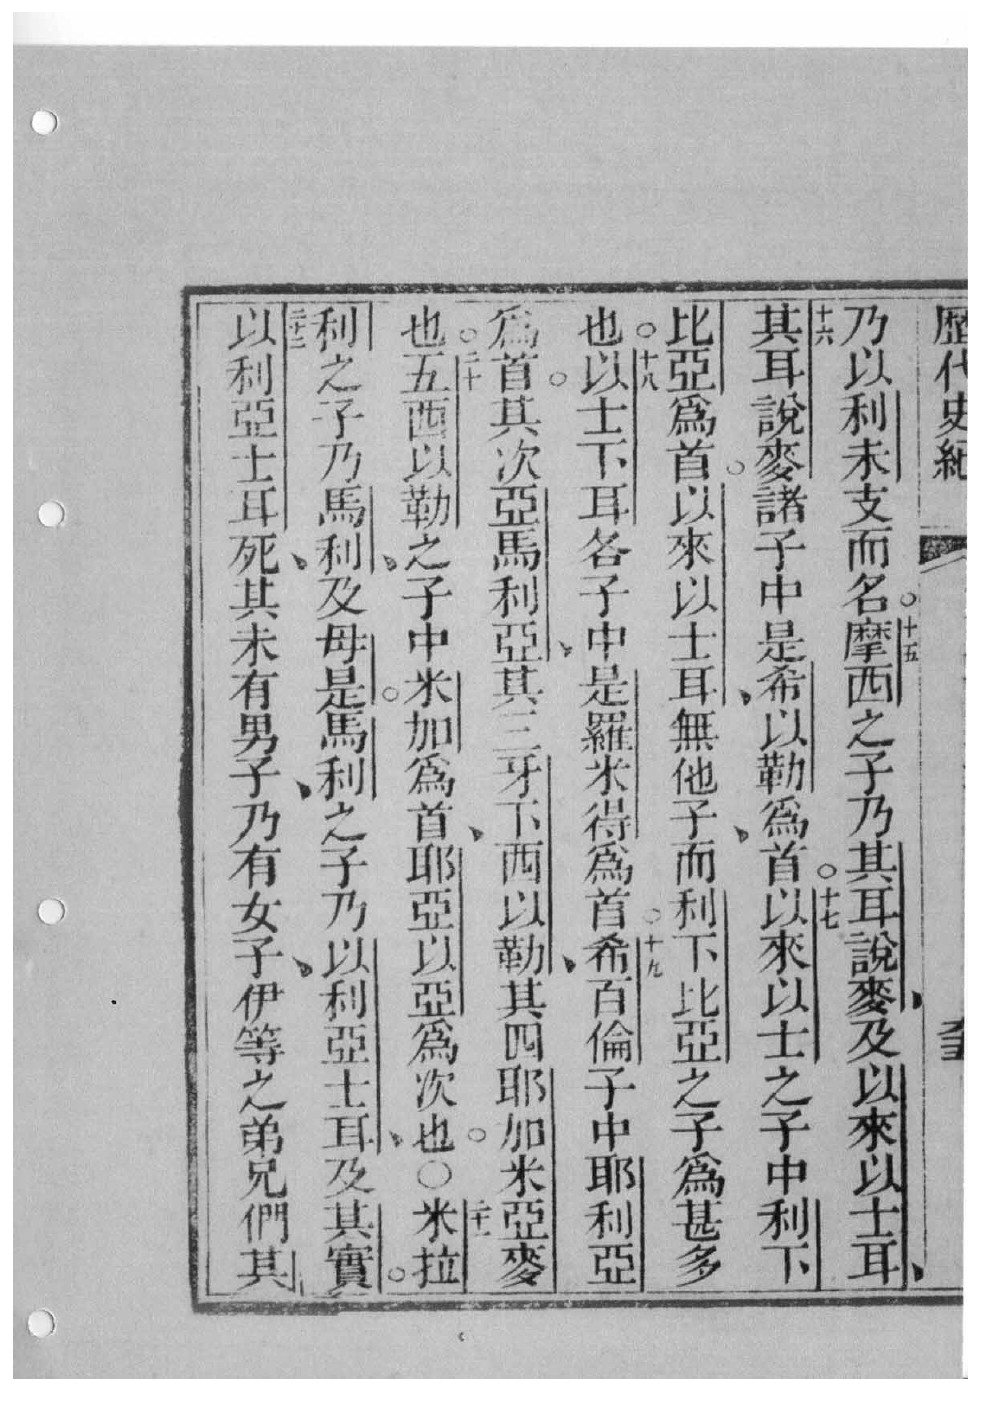 歷代史紀
乃以利未支而名。十五摩西之子乃其耳說麥、及以來以士耳、
十六其耳說麥諸子中是希以勒爲首。十七以來以士之子中利下
比亞爲首。以來以士耳、無他子、而利下比亞之子爲甚多
也。十八以士下耳各子中是羅米得爲首。十九希百倫子中耶利亞
爲首。其次亞馬利亞、其三牙下西以勒、其四耶加米亞麥
也。二十五西以勒之子中米加爲首、耶亞以亞爲次也。○二十一米拉
利之子乃馬利、及毋是。馬利之子乃以利亞士耳、及其實。
二十二以利亞士耳死、其未有男子、乃有女子、伊等之弟兄們其